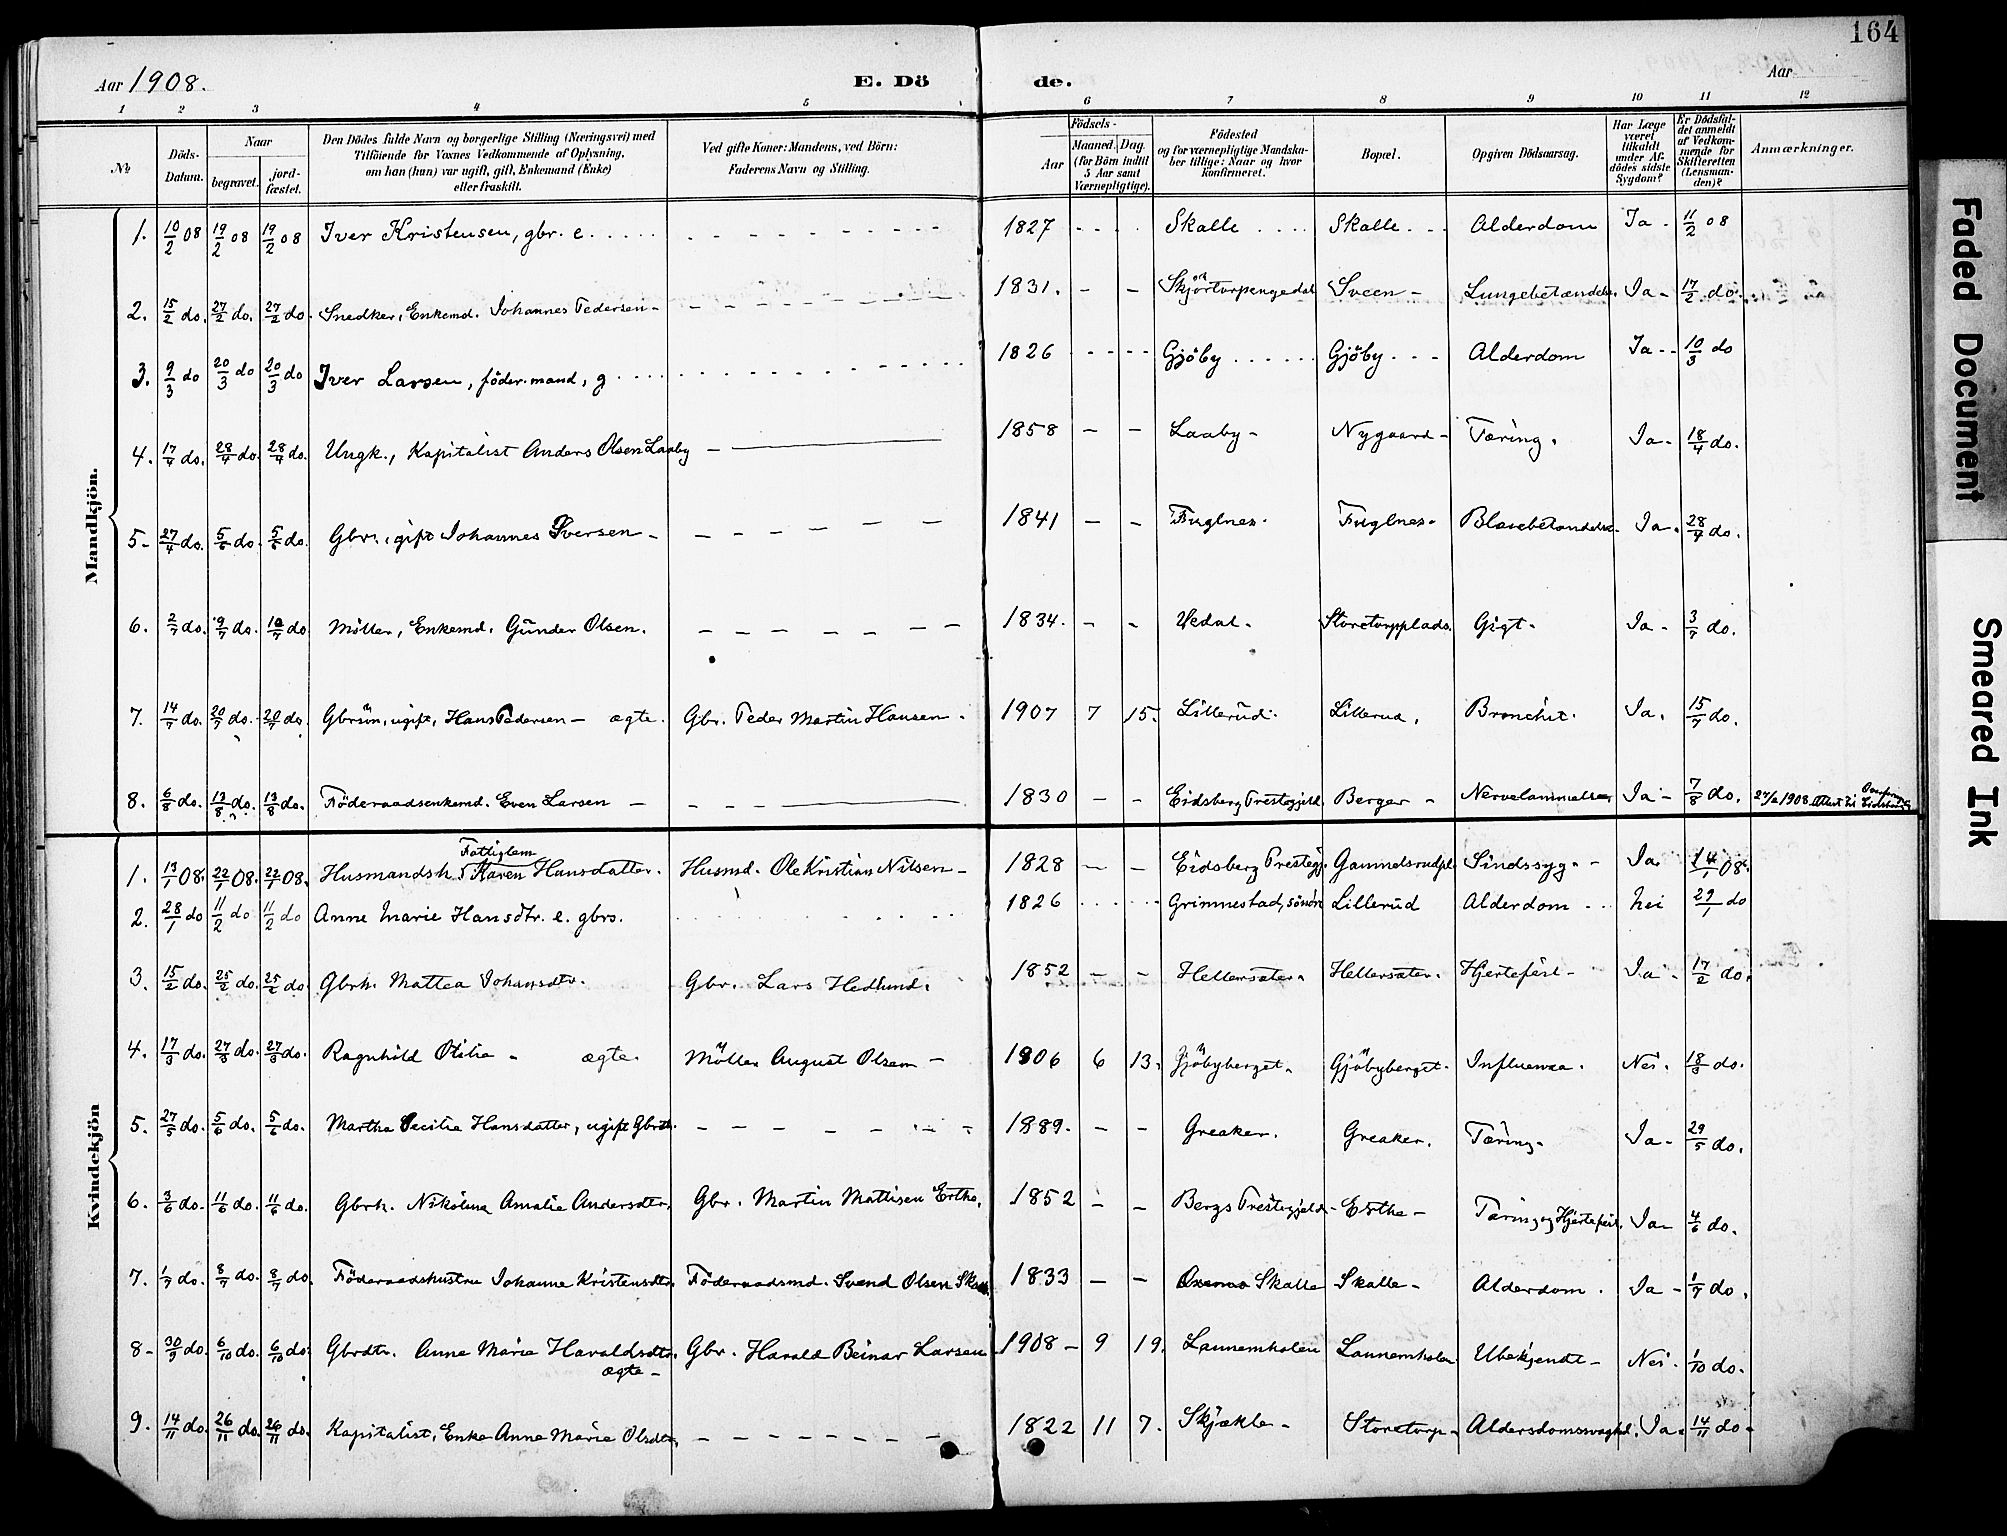 164
Aar 1908.
E. Dö de.
Aar
1 2 3 4 5 6 7 8 9 10 11 12
No
Döds-Datum.
Naar
begravet.
jord-fæstet.
Den Dödes fulde Navn og borgerlige Stilling (Næringsvei) med
Tilföiende for Voxnes Vedkommende af Oplysning,
om han (hun) var ugift, gift, Enkemand (Enke)
eller fraskilt.
Ved gifte Koner: Mandens, ved Börn:
Faderens Navn og Stilling.
Födsels-
Aar
Maaned. Dag.
(for Börn indtil
5 Aar samt
Værnepligtige).
Födested
og for værnepligtige Mandska-
ber tillige: Naar og hvor
konfirmeret.
Bopæl.
Opgiven Dödsaarsag.
Har Læge
været
tilkaldt
under Af-
dödes sidste
Sygdom?
Er Dödsfal-
det anmeldt
af Vedkom-
mende for
Skifteretten
(Lensman-
den)?
Anmærkninger.
Mandkjön.
1. 10/2 08 19/2 08 19/2 08 Iver Kristensen, gbr. e. 1827 Skalle Skalle Alderdom Ja 11/2 08
2. 15/2 do. 27/2 do. 27/2 do. Snedker, Enkemd. Johannes Pedersen 1831. Sveen Lungebetændelse. Ja 17/2 do.
3. 9/3 do 20/3 do 20/3 do Iver Larsen, föder.mand, g 1826 Gjöby Gjöby Alderdom Ja 10/3 do
4. 17/4 do. 28/4 do. 28/4 do. Ungk., Kapitalist Anders Olsen Laaby 1858 Laaby Nygaard Tæring. Ja 18/4 do.
5. 27/4 do. 5/6 do. 5/6 do. Gbr., gift Johannes Iversen 1841 Fuglnes. Fuglnes. Blærebetændelse Ja. 28/4 do.
6. 2/7 do. 9/7 do. 10/7 do Möller, Enkemd. Gunder Olsen. 1834. Vedal. Storetorpplads. Gigt. Ja 3/7 do.
7. 14/7 do. 20/7 do. 20/7 do. Gbrsön, ugift, Hans Pedersen ægte. Gbr. Peder Martin Hansen. 1907 7 15. Lillerud. Lillerud. Bronchit. Ja. 15/7 do.
8. 6/8 do. 13/8 do. 13/8 do. Föderaadsenkemd. Even Larsen 1830 Eidsberg Prestegjeld Berger Nervelammelse Ja 7/8 do. 1908 Attest til Eidsberg
Kvindekjön
Fattiglem
1. 13/1 08. 22/1 08. 22/1 08. Husmandsh. Karen Hansdatter. Husmd. Ole Kristian Nilsen 1828 Eidsberg Prestegj. Gammelsrudpl. Sindssyg. Ja 14/1 08.
2. 28/1 do 11/2 do 11/2 do Anne Marie Hansdtr. e. gbrs. 1826 Grimmestad, söndre Lillerud Alderdom Nei 29/1 do
3. 15/2 do. 25/2 do. 25/2 do Gbrh. Mattea Johansdtr. Gbr. Lars Hedlund. 1852 Hellersæter. Hellersæter. Hjertefeil Ja 17/2 do.
4. 17/3 do. 27/3 do. 27/3 do. Ragnhild Otilia ægte. Möller August Olsen 1906 6 13. Gjöbyberget. Gjöbyberget. Influenza. Nei. 18/3 do.
5. 27/5 do. 5/6 do. 5/6 do. Martha Cecilie Hansdatter, ugift Gbrdt. 1889. Greaker. Greaker. Tæring. Ja 29/5 do.
6. 3/6 do. 11/6 do. 11/6 do. Gbrh. Nikoline Amalie Andersdtr. Gbr. Martin Mattisen Ertha. 1852 Bergs Prestegjeld Ertha Tæring og Hjertefeil. Ja 4/6 do.
7. 1/7 do. 8/7 do. 8/7 do. Föderaadshustru Johanne Kristensdtr. Föderaadsmd. Svend Olsen Skalle 1833 Skalle Skalle Alderdom. Ja 1/7 do.
8 30/9 do. 6/10 do. 6/10 do. Gbrdtr. Anne Marie Haraldsdtr. ægte Gbr. Harald Beinar Larsen 1908 9 19. Lannemholen Lannemholen Ubekjendt Nei. 1/10 do.
9. 14/11 do. 26/11 do. 26/11 do. Kapitalist, Enke Anne Marie Olsdtr. 1822 11 7. Skjækle Storetorp Aldersdomssvaghed. Ja. 14/11 do.
Faded Document
Smeared Ink